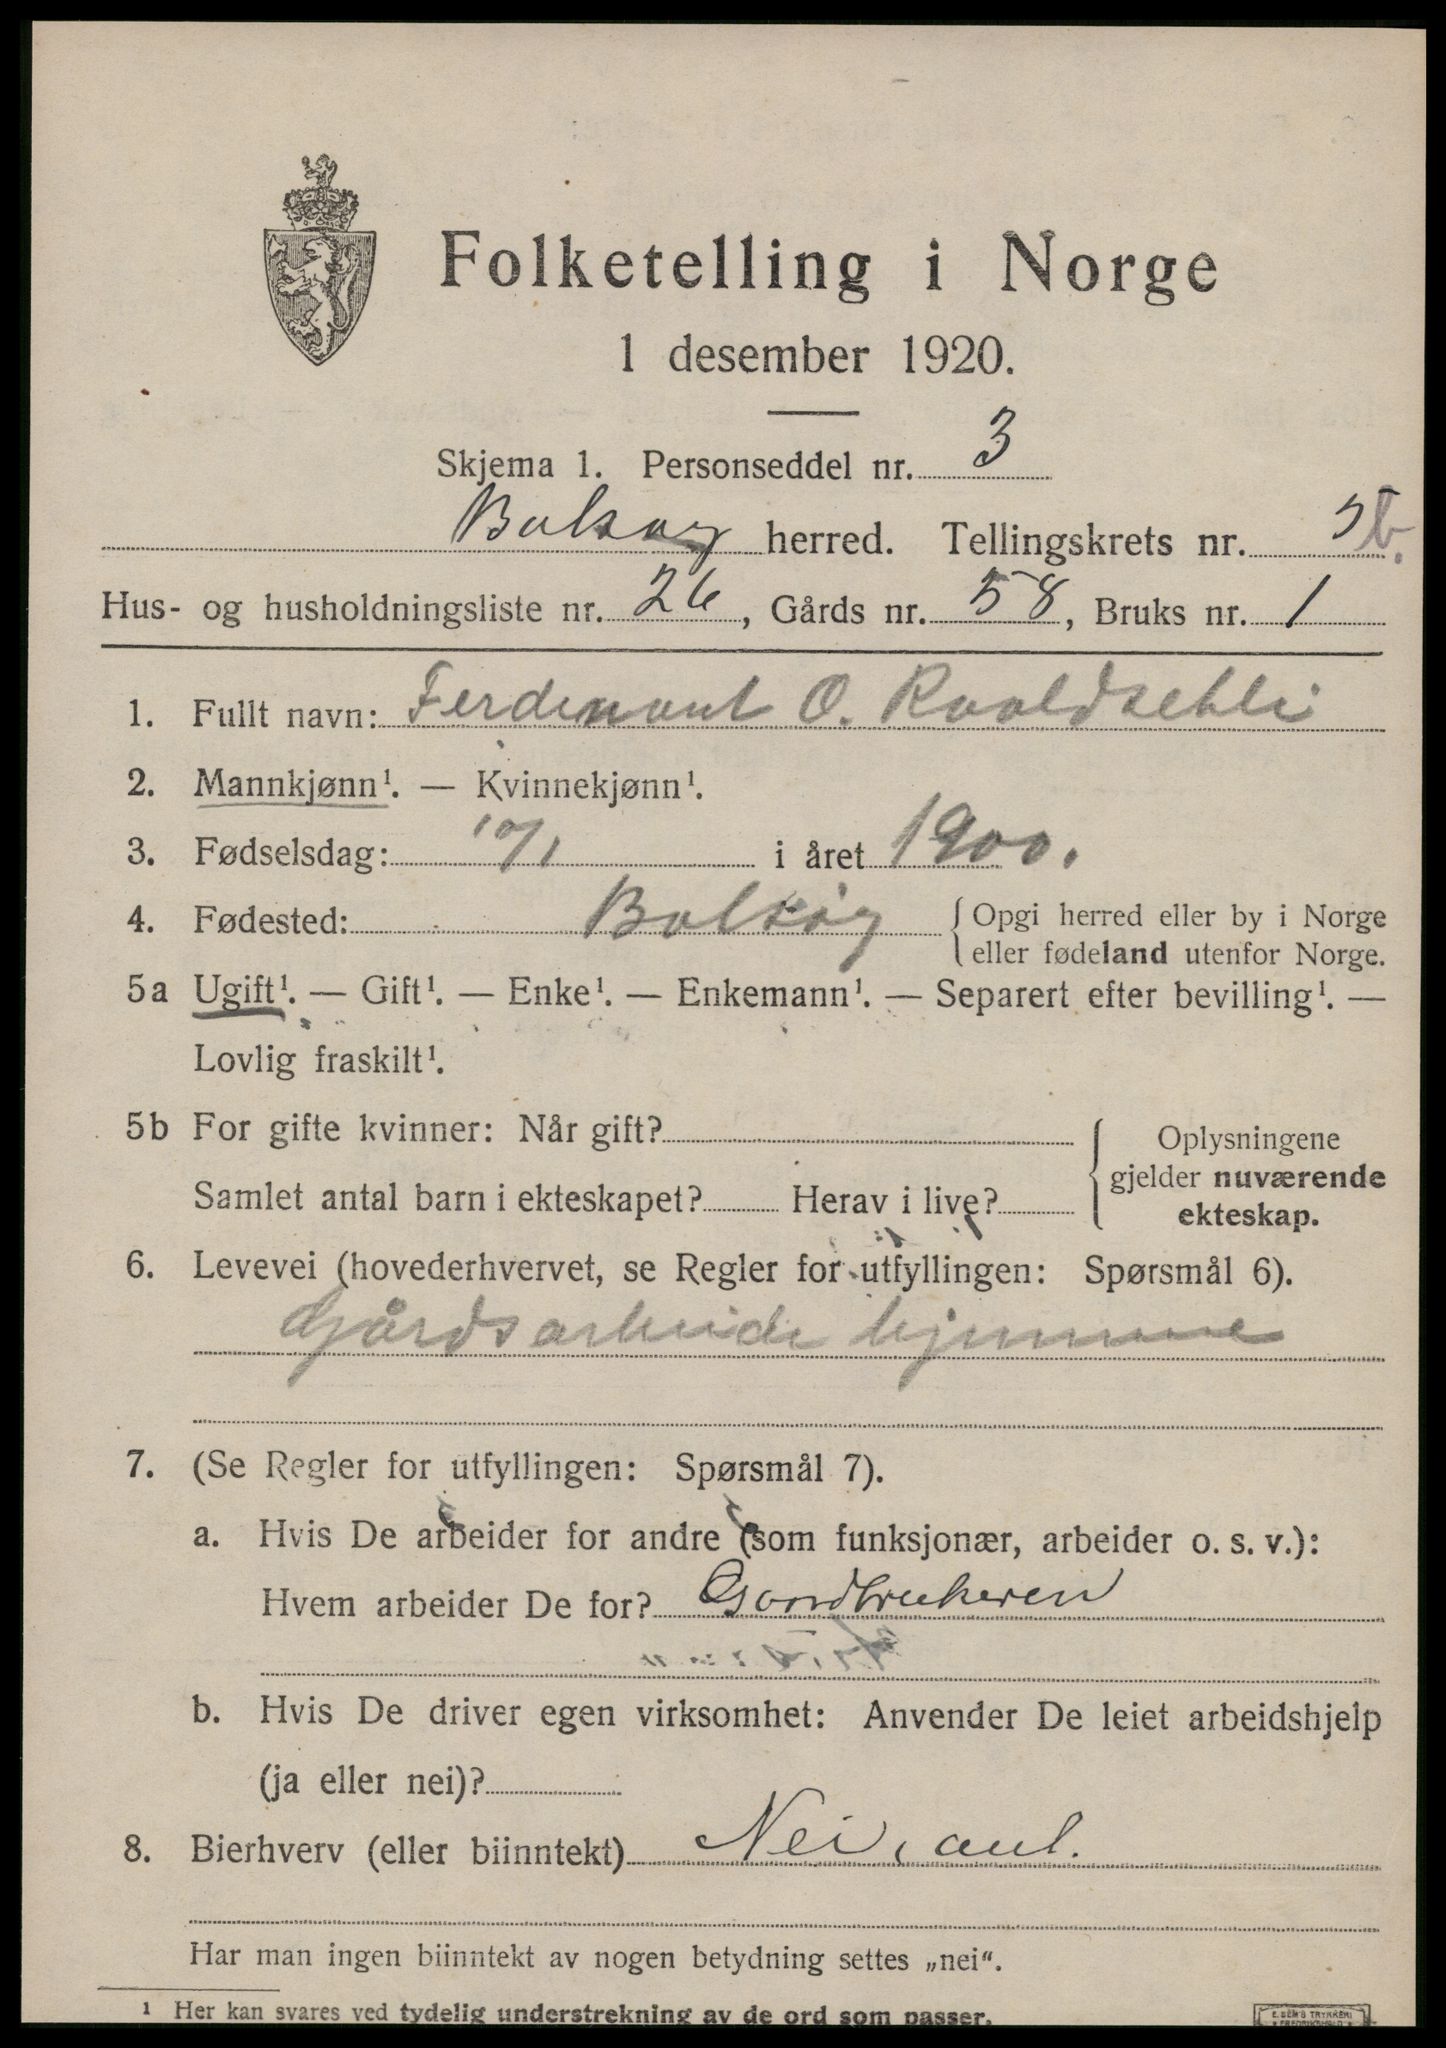 Folketelling i Norge
1 desember 1920.
Skjema 1. Personseddel nr. 3
Bolsøy herred. Tellingskrets nr. 5 b.
Hus- og husholdningsliste nr. 26, Gårds nr. 58, Bruks nr. 1
1. Fullt navn: Ferdinant O. Roaldsetli
2. Mannkjønn¹. — Kvinnekjønn¹.
3. Fødselsdag: i året 1900.
4. Fødested: Bolsøy { Opgi herred eller by i Norge
eller fødeland utenfor Norge.
5a Ugift¹. — Gift¹. — Enke¹. — Enkemann¹. — Separert efter bevilling¹. —
Lovlig fraskilt¹.
5b For gifte kvinner: Når gift?
Samlet antal barn i ekteskapet? Herav i live?
{ Oplysningene
gjelder nuværende
ekteskap.
6. Levevei (hovederhvervet, se Regler for utfyllingen: Spørsmål 6).
Gårdsarbeide hjemme
7. (Se Regler for utfyllingen: Spørsmål 7).
a. Hvis De arbeider for andre (som funksjonær, arbeider o. s. v.):
Hvem arbeider De for? Gaardbrukeren
b. Hvis De driver egen virksomhet: Anvender De leiet arbeidshjelp
(ja eller nei)?
8. Bierhverv (eller biinntekt) Nei,
Har man ingen biinntekt av nogen betydning settes „nei“.
¹ Her kan svares ved tydelig understrekning av de ord som passer.
E. SEM'S TRYKKERI
FREDRIKSHALD